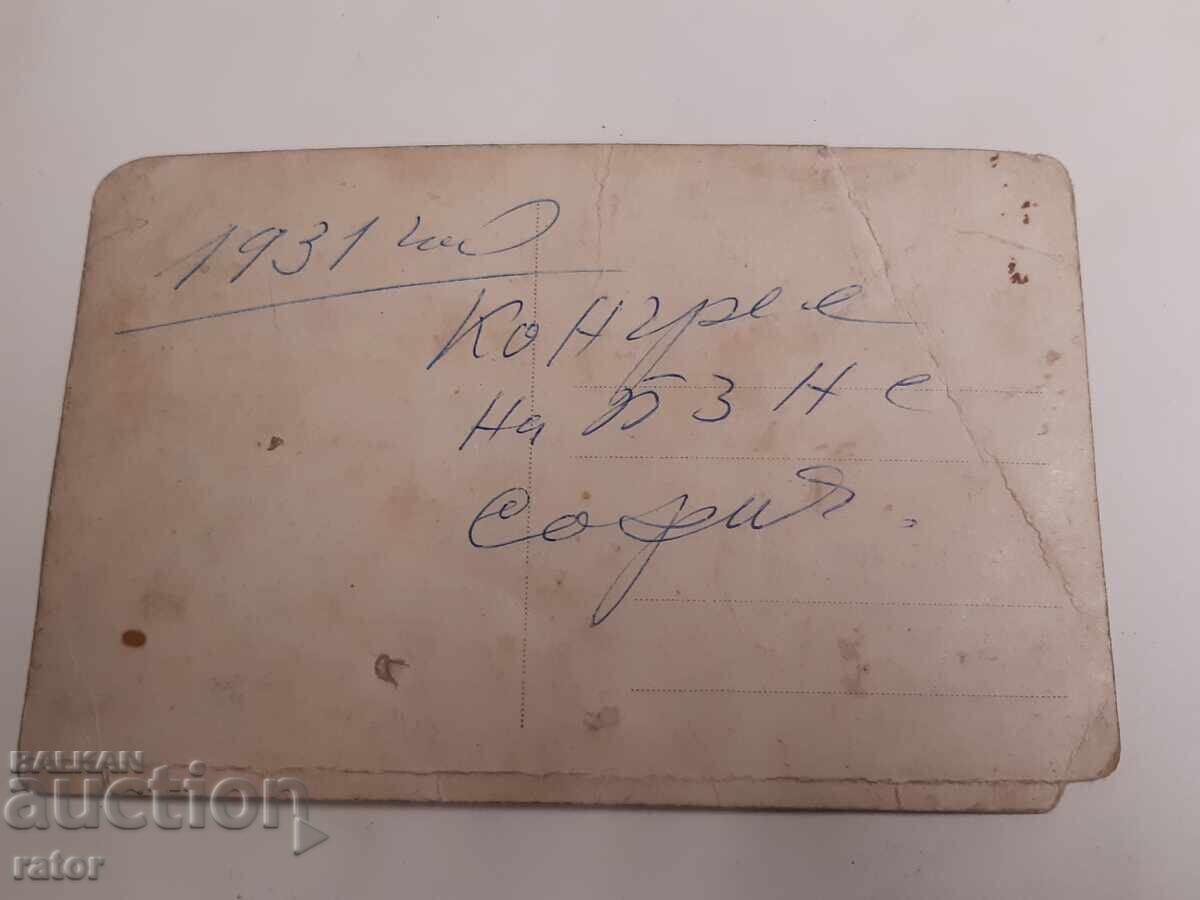 1931 год
Конгрес
на БЗНС
София.
BALKAN
auction
rator